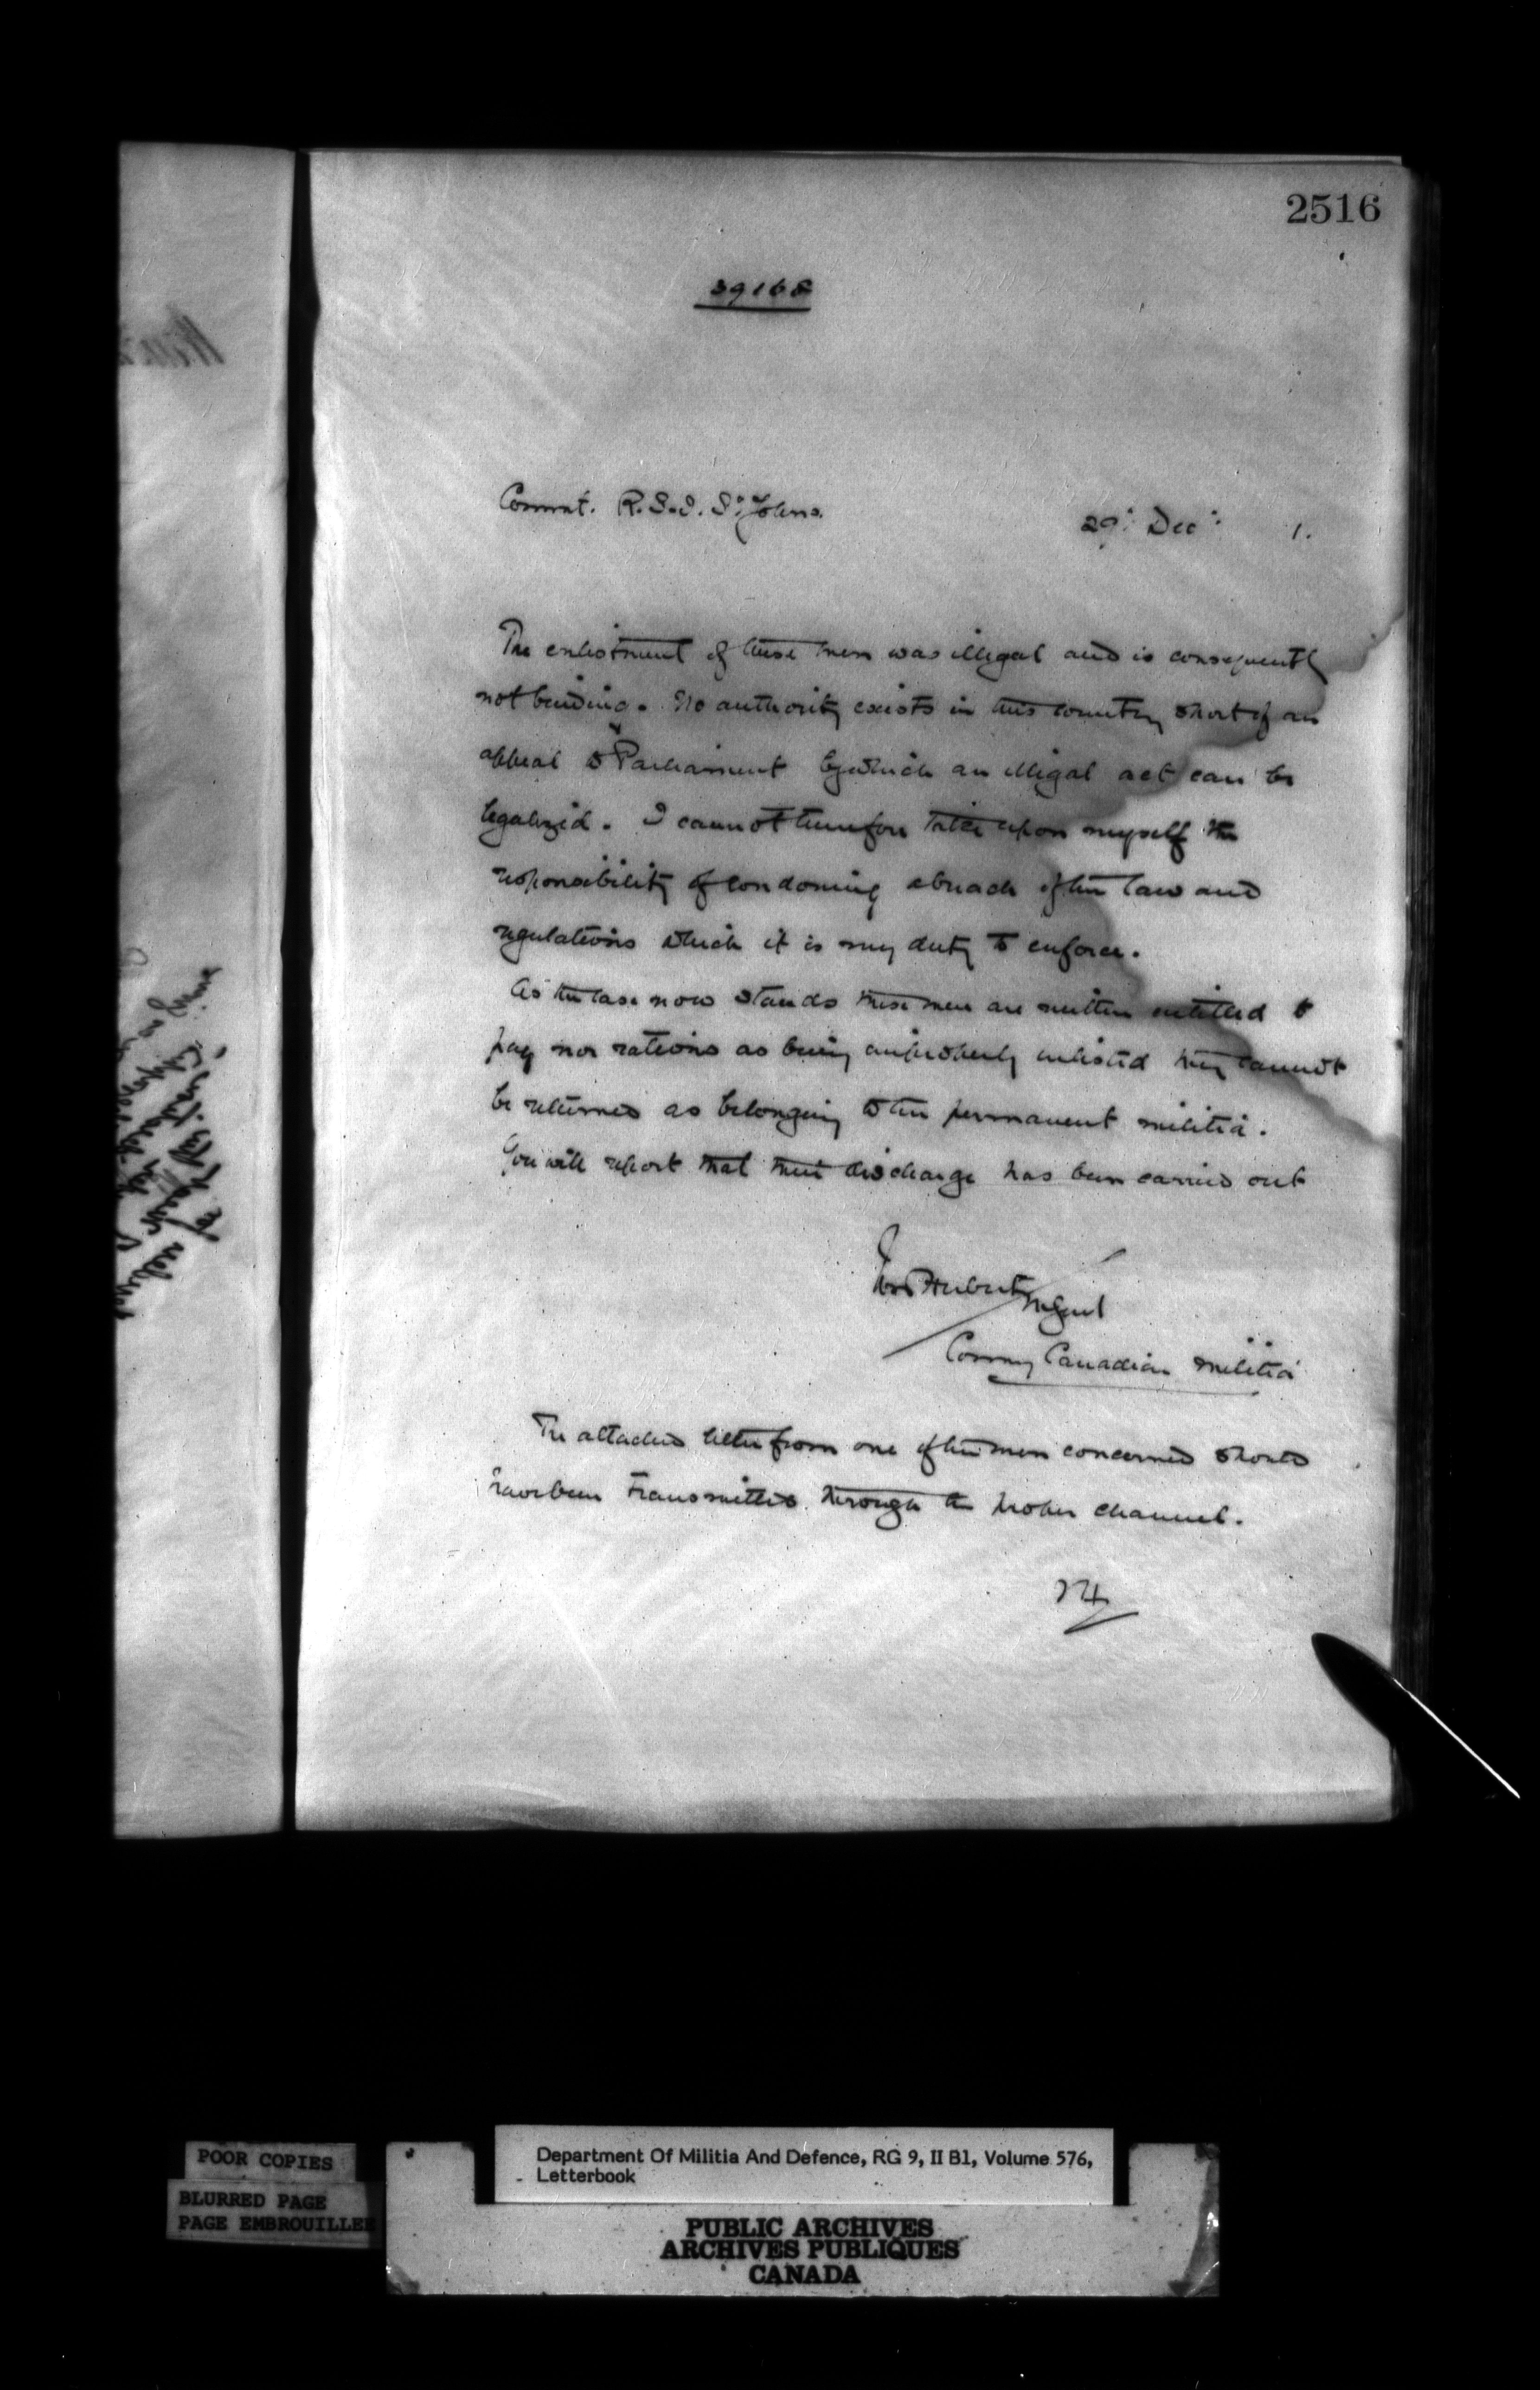 2516
39168
Commt. R.S.I. St. Johns.
29th Decr 1.
The enlistment of these men was illegal and is consequently
not binding. No authority exists in this country short of an
appeal to Parliament by which an illegal act can be
legalized. I cannot therefore take upon myself the
responsibility of condoning a breach of the law and
regulations which it is my duty to enforce.
As the case now stands these men are neither entitled to
pay nor rations as being improperly enlisted they cannot
be returned as belonging to the permanent militia.
You will report that their discharge has been carried out
Ivor Herbert MGenl
Commg Canadian Militia
The attached letter from one of the men concerned should
have been transmitted through the proper channel.
IH
POOR COPIES
BLURRED PAGE
PAGE EMBROUILLEE
Department Of Militia And Defence, RG 9, II B1, Volume 576,
Letterbook
PUBLIC ARCHIVES
ARCHIVES PUBLIQUES
CANADA